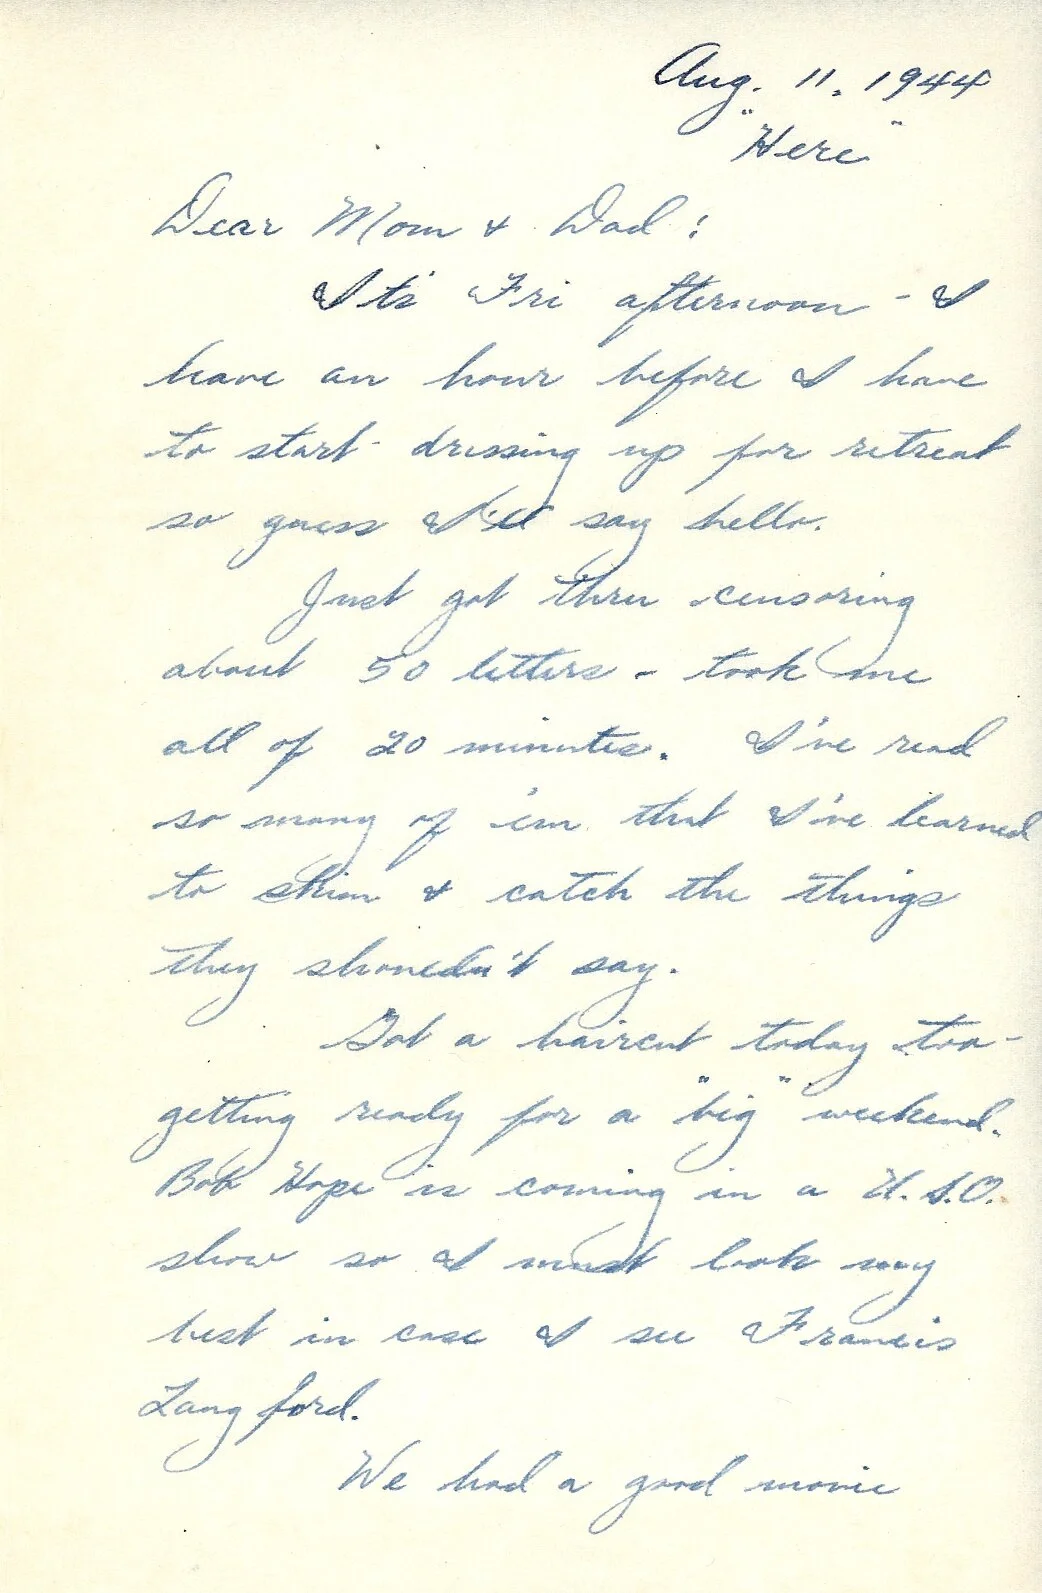 Aug. 11, 1944
"Here"
Dear Mom & Dad:
It's Fri afternoon - I
have an hour before I have
to start dressing up for retreat
so guess I'll say hello.
Just got thru censoring
about 50 letters - took me
all of 20 minutes. I've read
so many of 'em that I've learned
to skim & catch the things
they shouldn't say.
Got a haircut today too -
getting ready for a "big" weekend.
Bob Hope is coming in a U.S.O.
show so I must look my
best in case I see Francis
Langford.
We had a good movie